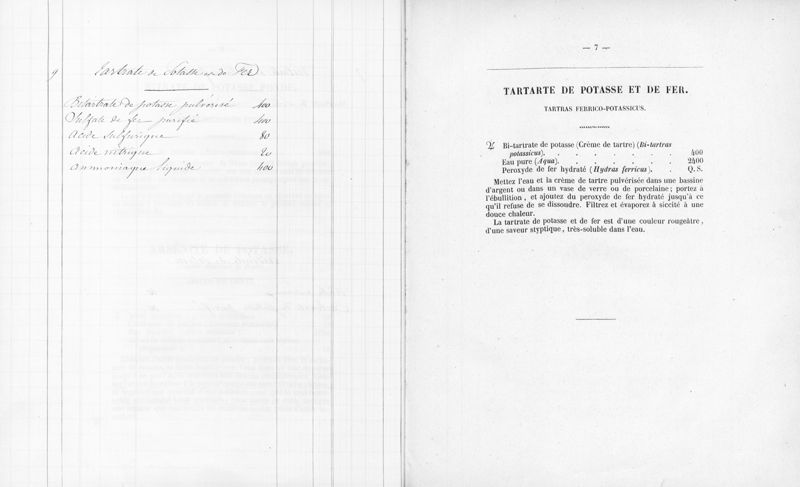 9 Tartrate de Potasse et de Fer
Bitartrate de potasse pulvérisé 400
Sulfate de fer purifié 400
Acide sulfurique 80
Acide nitrique 20
Ammoniaque liquide 400
— 7 —
TARTARTE DE POTASSE ET DE FER.
TARTRAS FERRICO-POTASSICUS.
Bi-tartrate de potasse (Crème de tartre) (Bi-tartras
potassicus). . . . . . . 400
Eau pure (Aqua). . . . . . . 2400
Peroxyde de fer hydraté (Hydras ferricus). . Q. S.
Mettez l'eau et la crème de tartre pulvérisée dans une bassine
d'argent ou dans un vase de verre ou de porcelaine; portez à
l'ébullition, et ajoutez du peroxyde de fer hydraté jusqu'à ce
qu'il refuse de se dissoudre. Filtrez et évaporez à siccité à une
douce chaleur.
La tartrate de potasse et de fer est d'une couleur rougeâtre,
d'une saveur styptique, très-soluble dans l'eau.